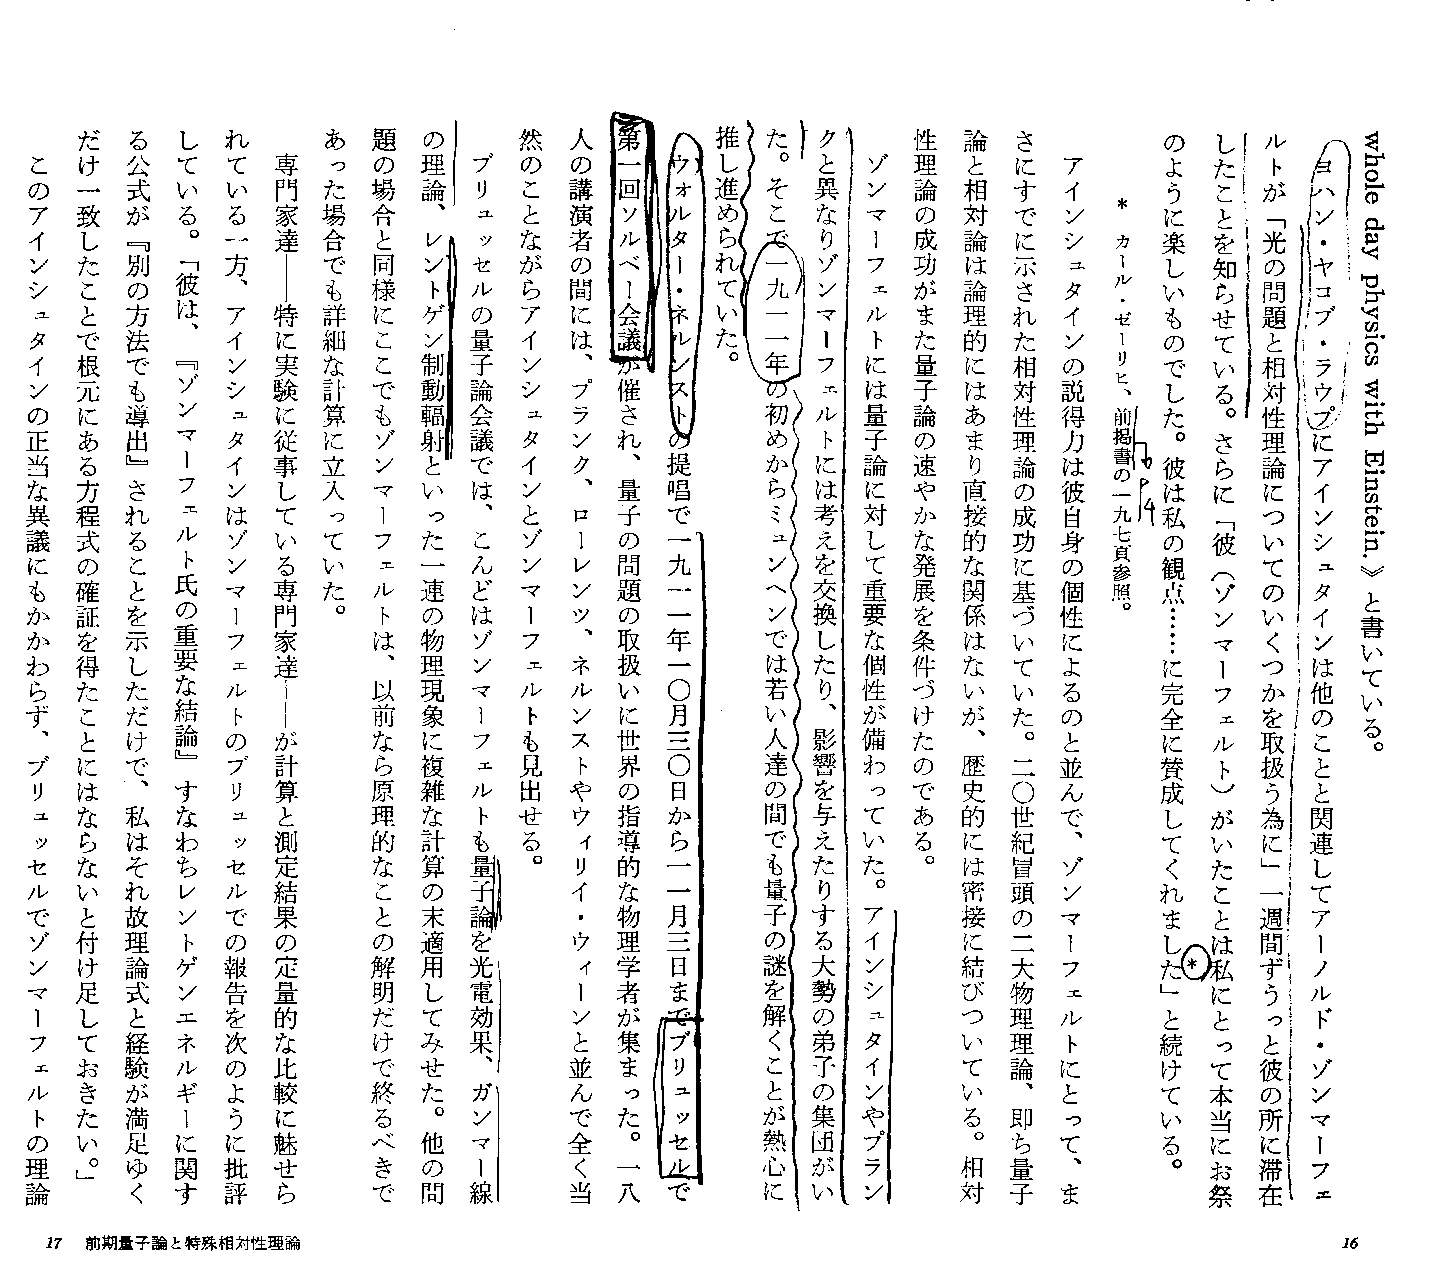 whole day physics with Einstein.》と書いている。
ヨハン・ヤコブ・ラウプにアインシュタインは他のことと関連してアーノルド・ゾンマーフェ
ルトが「光の問題と相対性理論についてのいくつかを取扱う為に」一週間ずうっと彼の所に滞在
したことを知らせている。さらに「彼（ゾンマーフェルト）がいたことは私にとって本当にお祭
のように楽しいものでした。彼は私の観点……に完全に賛成してくれました*」と続けている。
* カール・ゼーリヒ、前掲書の一九七頁参照。
p4
アインシュタインの説得力は彼自身の個性によるのと並んで、ゾンマーフェルトにとって、ま
さにすでに示された相対性理論の成功に基づいていた。二〇世紀冒頭の二大物理理論、即ち量子
論と相対論は論理的にはあまり直接的な関係はないが、歴史的には密接に結びついている。相対
性理論の成功がまた量子論の速やかな発展を条件づけたのである。
ゾンマーフェルトには量子論に対して重要な個性が備わっていた。アインシュタインやプラン
クと異なりゾンマーフェルトには考えを交換したり、影響を与えたりする大勢の弟子の集団がい
た。そこで一九一一年の初めからミュンヘンでは若い人達の間でも量子の謎を解くことが熱心に
推し進められていた。
16
ウォルター・ネルンストの提唱で一九一一年一〇月三〇日から一一月三日までブリュッセルで
第一回ソルベー会議が催され、量子の問題の取扱いに世界の指導的な物理学者が集まった。一八
人の講演者の間には、プランク、ローレンツ、ネルンストやウィリイ・ウィーンと並んで全く当
然のことながらアインシュタインとゾンマーフェルトも見出せる。
ブリュッセルの量子論会議では、こんどはゾンマーフェルトも量子論を光電効果、ガンマー線
の理論、レントゲン制動輻射といった一連の物理現象に複雑な計算の末適用してみせた。他の問
題の場合と同様にここでもゾンマーフェルトは、以前なら原理的なことの解明だけで終るべきで
あった場合でも詳細な計算に立入っていた。
専門家達――特に実験に従事している専門家達――が計算と測定結果の定量的な比較に魅せら
れている一方、アインシュタインはゾンマーフェルトのブリュッセルでの報告を次のように批評
している。「彼は、『ゾンマーフェルト氏の重要な結論』すなわちレントゲンエネルギーに関す
る公式が『別の方法でも導出』されることを示しただけで、私はそれ故理論式と経験が満足ゆく
だけ一致したことで根元にある方程式の確証を得たことにはならないと付け足しておきたい。」
このアインシュタインの正当な異議にもかかわらず、ブリュッセルでゾンマーフェルトの理論
17 前期量子論と特殊相対性理論